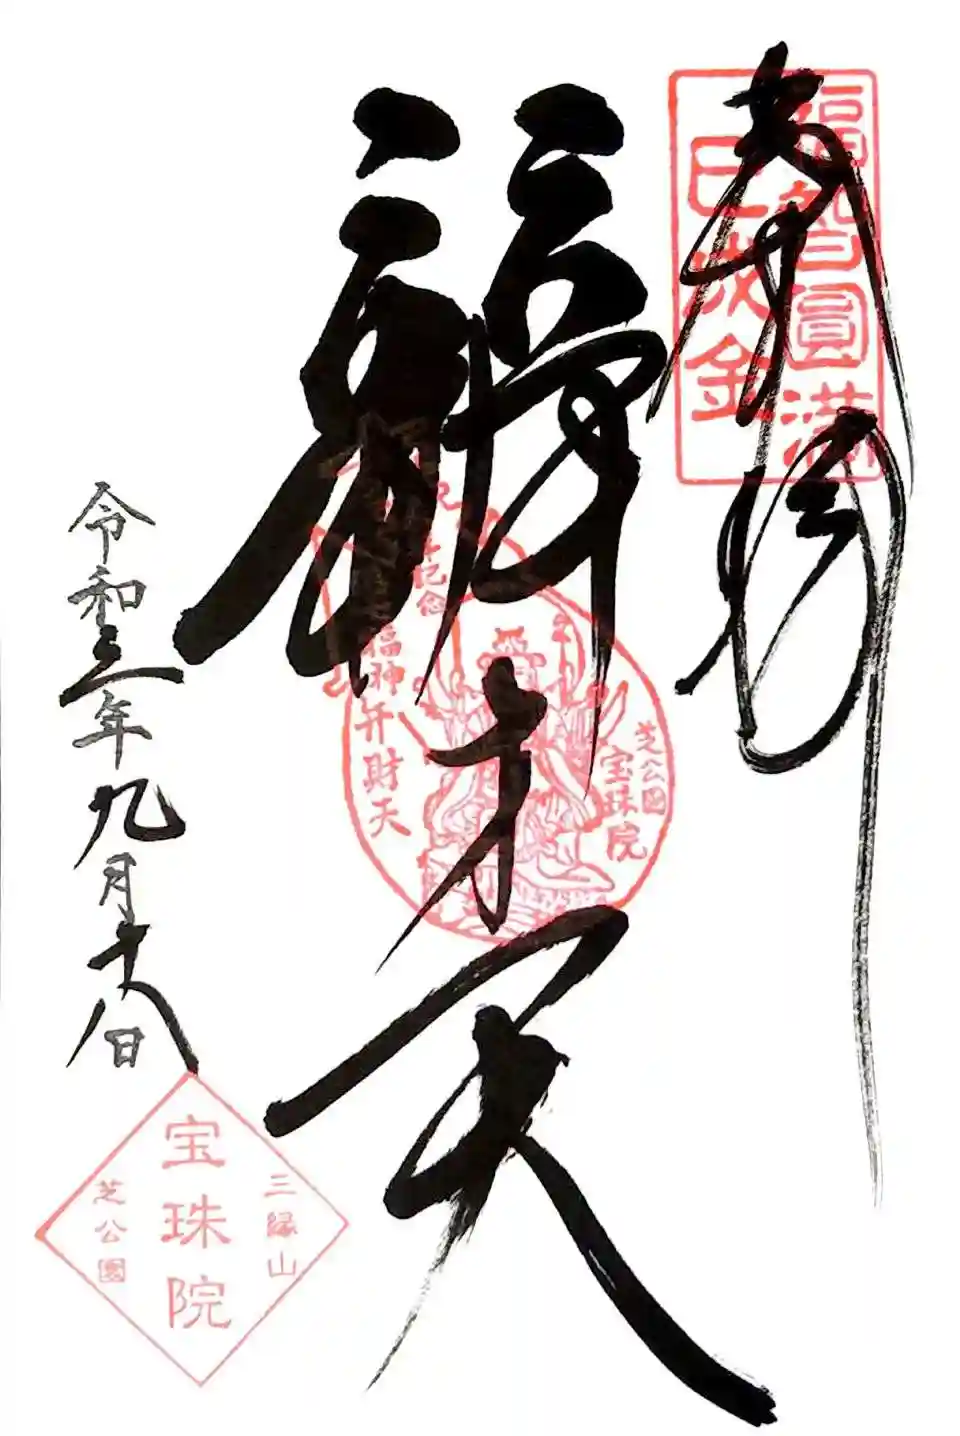 奉拝
福智圓満
巳成金
辨才天
福神弁財天
記念
芝公園
宝珠院
令和三年九月十八日
三縁山
宝珠院
芝公園